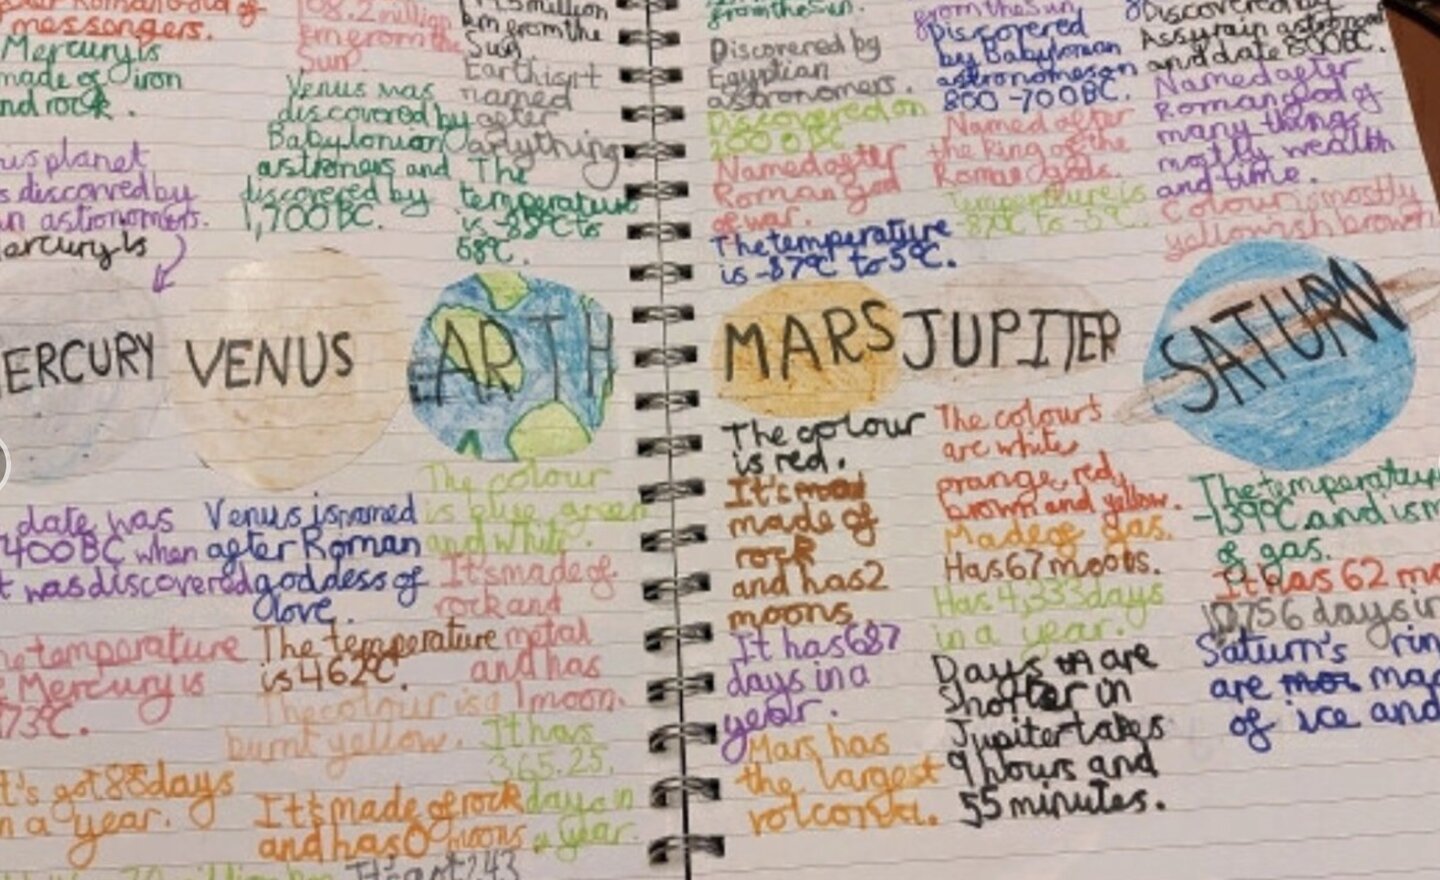 messengers.
Mercury is
made of iron
and rock.
his planet
s discorved by
an astronomers.
Mercury is
MERCURY
date was
400 BC when
t was discovered
he temperature
Mercury is
73°C.
t's got 88 days
n a year.
108.2 million
km from the
Sun
Venus was
discovered by
Babylonion
astroners and
discovered by
1,700 BC.
VENUS
Venus is named
after Roman
goddess of
love.
The temperature
is 462°C.
The colour is a
burnt yellow.
It's made of rock
and has 0 moons
million
km from the
Sun
Earth isn't
named
after
anything
The
temperature
is -88°C to
58°C.
EARTH
The colour
is blue green
and white.
It's made of
rock and
metal
and has
1 moon.
It has
365.25
days in
a year.
It's got 243
from the Sun.
Discovered by
Egyptian
astronomers.
Discovered on
200 0 BC
Named after
Roman God
of war.
The temperature
is -87°C to 5°C.
MARS
The colour
is red.
It's
made of
rock
and has 2
moons.
It has 687
days in a
year.
Mars has
the largest
volcona.
from the Sun
Discovered
by Babylonian
astronomes on
800-700 BC.
Named after
the king of the
Roman gods.
Temperature is
-87°C to -5°C.
JUPITER
The colours
are white
orange, red,
brown and yellow.
Made of gas.
Has 67 moons.
Has 4,333 days
in a year.
Days are
shorter in
Jupiter takes
9 hours and
55 minutes.
Discovered by
Assyrain astronom
and date 800 BC.
Named after
Roman god of
many things
mostly wealth
and time.
Colour is mostly
yellowish brown
SATURN
The temperature
-139°C and is m
of gas.
It has 62 mo
10,756 days in
Saturn's rin
are mad
of ice and